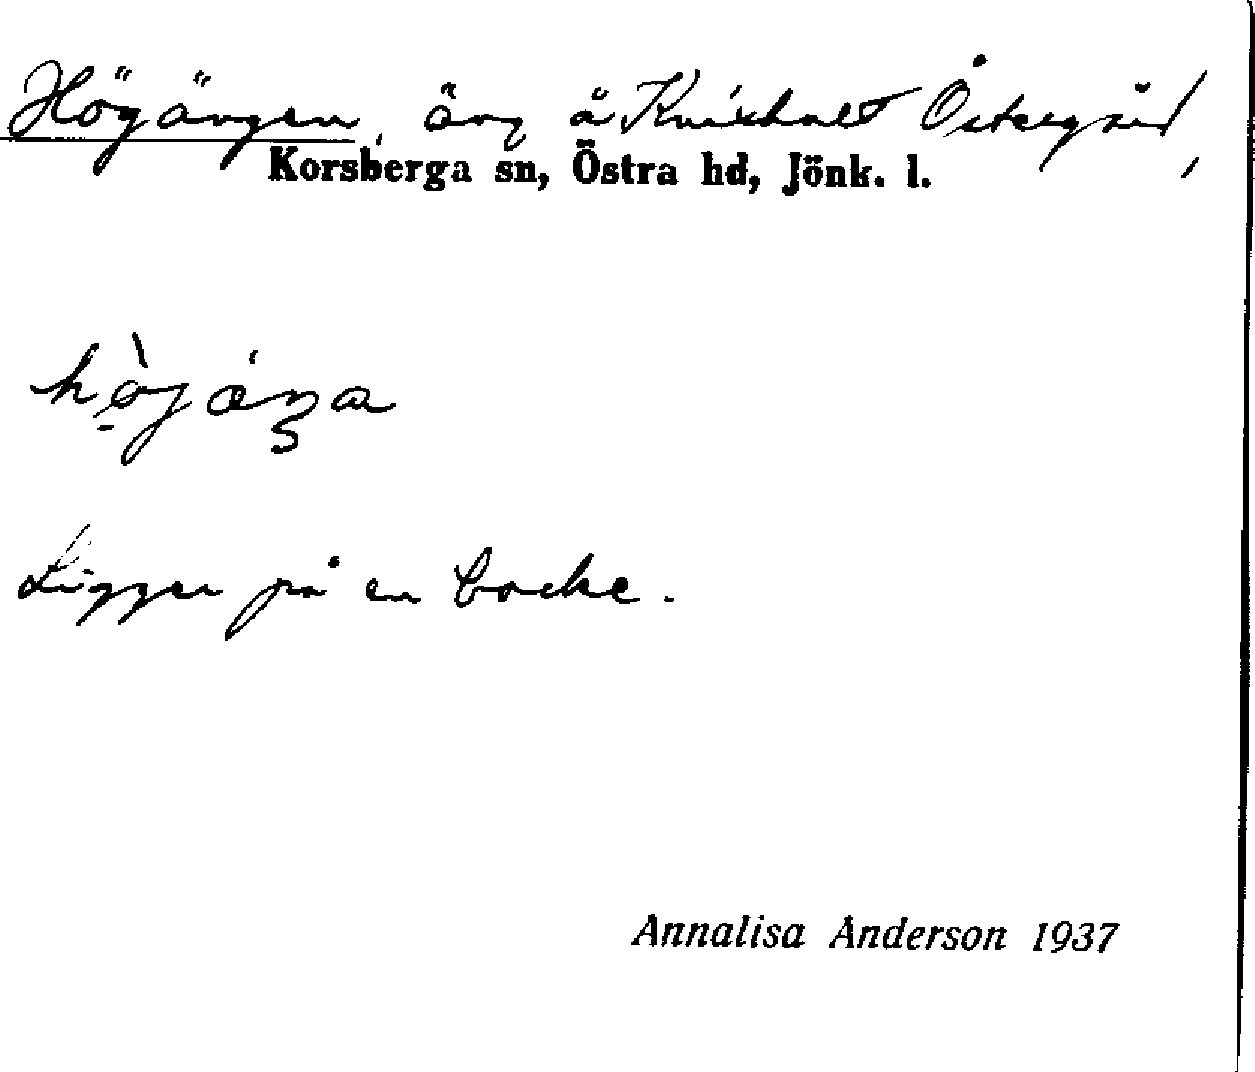 Högängen, äng å Knixhult Östergård,
Korsberga sn, Östra hd, Jönk. l.
Ligger på en backe.
Annalisa Anderson 1937